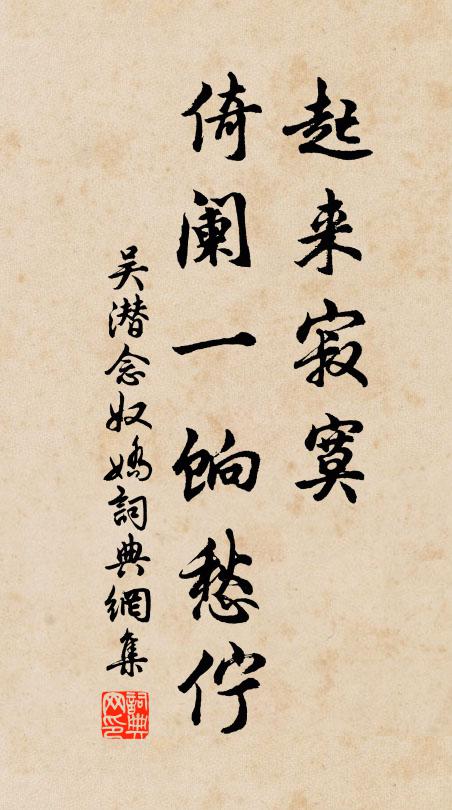 起来寂寞
倚阑一饷愁伫
吴潜念奴娇詞典網集
詞典网印